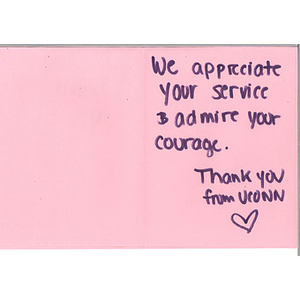 We appreciate
your service
& admire your
courage.
Thank you
from UCONN